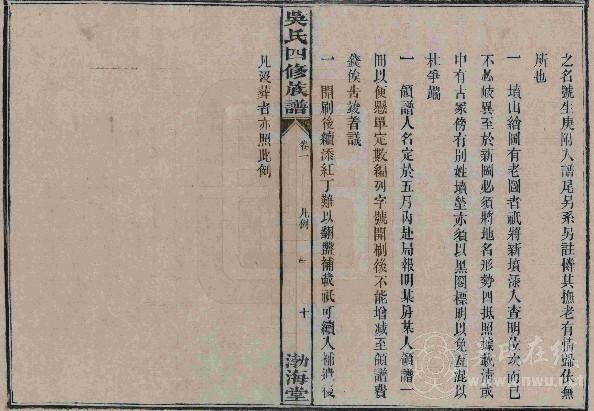 之名號生庚附入譜尾另系另註俾其撫老有情歸依無
所也
一 墳山繪圖有老圖者祇將新墳添入查明位次而已
不必歧異至於新圖必須將地名形勢四抵照據載清或
中有古冢傍有別姓墳塋亦須以黑圈標明以免互混以
杜爭端
一 領譜人名定於五月內赴局報明某房某人領譜一
冊以便懸單定數編列字號開刷後不能增减至領譜費
錢俟告竣著議
一 開刷後續添紅丁難以翻盤補載祇可續入補遺後
凡沒葬者亦照此例
吳氏四修族譜
卷一
凡例
十
渤海堂